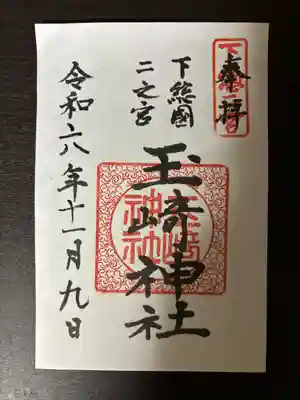 奉拝
下総國
二之宮
玉﨑神社
令和六年十一月九日
玉﨑
神社